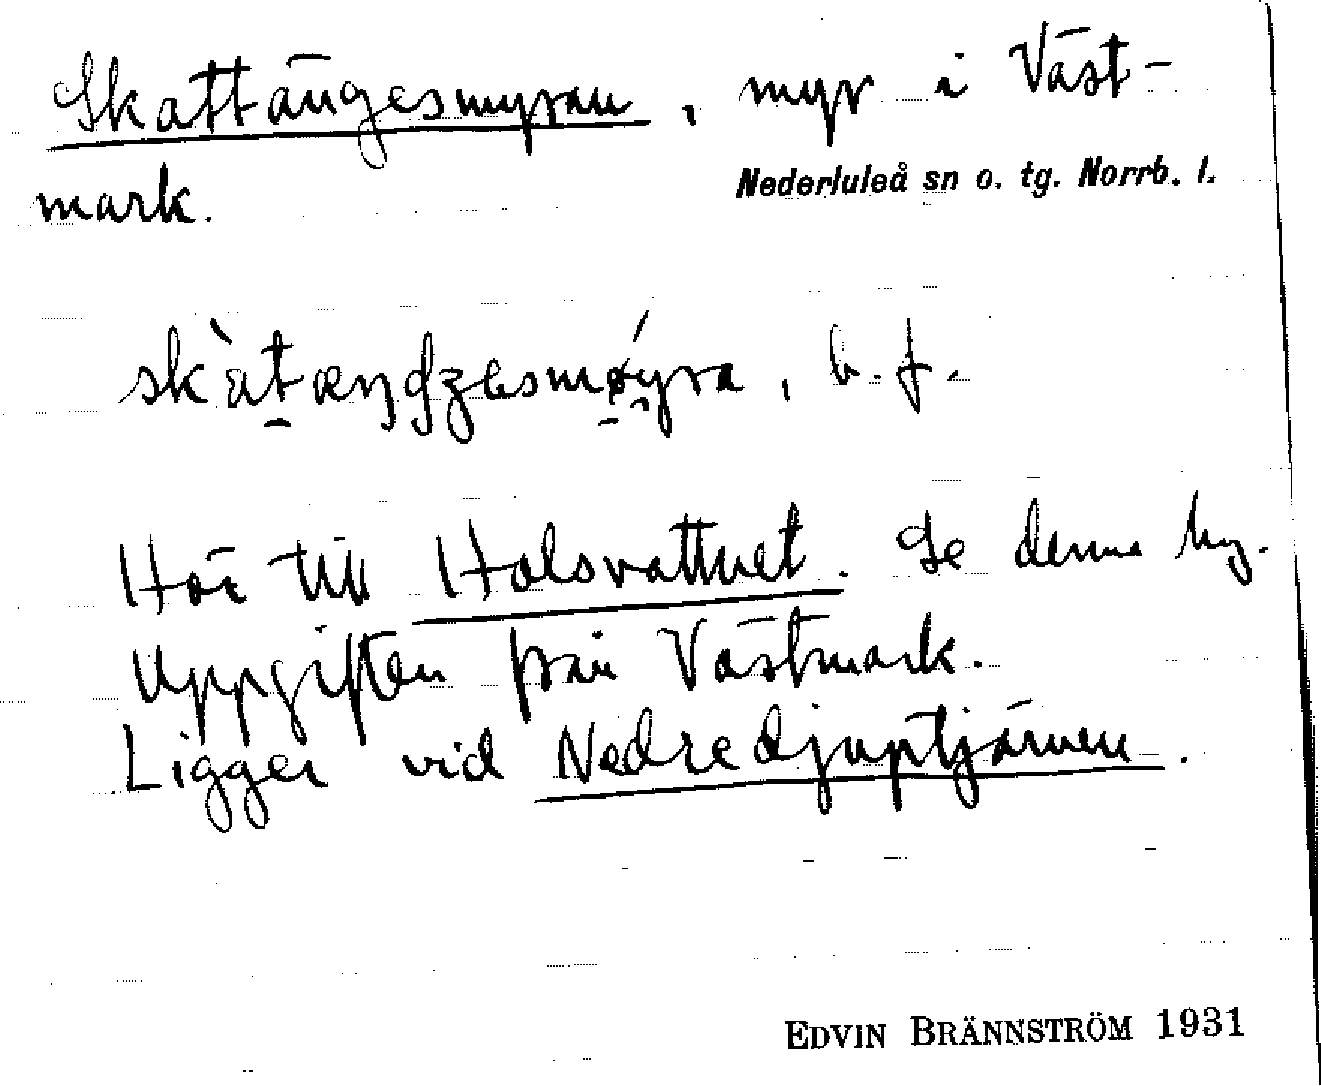 Skattängesmyran, myr i Väst-
mark.
Nederluleå sn o. tg. Norrb. l.
skàtæŋʤesmǿyra, b. f.
Hör till Holsvattnet. Se denna by.
Uppgiften från Västmark.
Ligger vid Nedre djuptjärnen.
EDVIN BRÄNNSTRÖM 1931